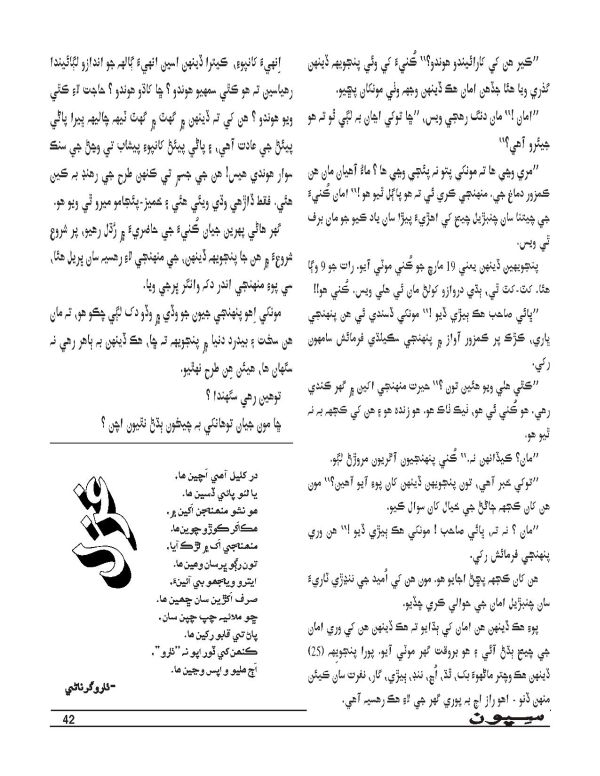 ”کير هن کي کارائيندو هوندو؟“ ڪُنيءَ کي وئي پنجويهه ڏينهن
گذري ويا هئا جڏهن امان هڪ ڏينهن وجهه وٺي مونکان پڇيو.
”امان !“ مان دنگ رهجي ويس، ”ڇا توکي اڃان به لڳي ٿو ته هو
جيئرو آهي؟“
”مري وڃي ها ته مونکي پتو نه پئجي وڃي ها ؟ ماءُ آهيان مان هن
ڪمزور دماغ جي. منهنجي ڪري ئي ته هو پاڳل ٿيو هو !“ امان ڪُنيءَ
جي چيتنا سان چنبڙيل چيچ کي اهڙيءَ پيڙا سان ياد ڪيو جو مان برف
ٿي ويس.
پنجويهين ڏينهن يعني 19 مارچ جو ڪُني موٽي آيو. رات جو 9 وڳا
هئا. کٽ-کٽ ٿي، ٻڌي دروازو کولڻ مان ئي هلي ويس. ڪُني هو!!
”ڀائي صاحب هڪ ٻيڙي ڏيو !“ مونکي ڏسندي ئي هن پنهنجي
ڀاري، کڙڪ پر ڪمزور آواز ۾ پنهنجي سڪيلڌي فرمائش سامهون
رکي.
”ڪٿي هلي ويو هئين تون ؟“ حيرت منهنجي اکين ۾ گهر ڪندي
رهي. هو ڪُني ئي هو، ٺيڪ ٺاڪ هو. هو زنده هو ۽ هن کي ڪجهه به نه
ٿيو هو.
”مان؟ ڪيڏانهن نه.“ ڪُني پنهنجيون آڱريون مروڙڻ لڳو.
”توکي خبر آهي، تون پنجويهن ڏينهن کان پوءِ آيو آهين؟“ مون
هن کان ڪجهه ڄاڻڻ جي خيال کان سوال ڪيو.
”مان ؟ نه ته، ڀائي صاحب ! مونکي هڪ ٻيڙي ڏيو !“ هن وري
پنهنجي فرمائش رکي.
هن کان ڪجهه پڇڻ اجايو هو. مون هن کي اُميد جي ننڍڙي ٽاريءَ
سان چنبڙيل امان جي حوالي ڪري ڇڏيو.
پوءِ هڪ ڏينهن هن امان کي ٻڌايو ته هڪ ڏينهن هن کي وري امان
جي چيچ ٻڌڻ آئي ۽ هو بروقت گهر موٽي آيو. پورا پنجويهه (25)
ڏينهن هڪ وچتر ماڻهوءَ بک، ٿڌ، اُڃ، ننڊ، ٻيڙي، گار، نفرت سان ڪيئن
منهن ڏنو - اهو راز اڄ به پوري گهر جي لاءِ هڪ رهسيه آهي.
اِنهيءَ کانپوءِ، ڪيترا ڏينهن اسين انهيءَ ڳالهه جو اندازو لڳائيندا
رهياسين ته هو ڪٿي سمهيو هوندو ؟ ڇا کاڌو هوندو ؟ حاجت لاءِ ڪٿي
ويو هوندو ؟ هن کي ته ڏينهن ۾ گهٽ ۾ گهٽ ٽيهه چاليهه ڀيرا پاڻي
پيئڻ جي عادت آهي، ۽ پاڻي پيئڻ کانپوءِ پيشاب تي وڃڻ جي سنڪ
سوار هوندي هيس! هن جي جسم تي ڪنهن طرح جي رهنڊ به ڪين
هئي. فقط ڏاڙهي وڏي ويئي هئي ۽ قميز-پئجامو ميرو ٿي ويو هو.
گهر هاڻي پهرين جيان ڪُنيءَ جي حاضريءَ ۾ رُڌل رهيو، پر شروع
شروعءَ ۾ هن جا پنجويهه ڏينهن، جي منهنجي لاءِ رهسيه سان ڀريل هئا،
سي پوءِ منهنجي اندر دک وانگر ڀرجي ويا.
مونکي اِهو پنهنجي جيون جو وڏي ۾ وڏو دک لڳي چڪو هو، ته مان
هن سخت ۽ بيدرد دنيا ۾ پنجويهه ته ڇا، هڪ ڏينهن به ٻاهر رهي نه
سگهان ها، هيئن هِن طرح نهٿيو.
توهين رهي سگهندا ؟
ڇا مون جيان توهانکي به چيخون ٻڌڻ نٿيون اچن ؟
غزل
در کليل آهي اَچين ها،
يا لنو پائي ڏسين ها.
هو نشو منهنجن اکين ۾،
هڪ اکر ڪوڙو چوين ها.
منهنجي اک ۾ لڙڪ آيا،
تون رڳو پر سان ومين ها.
ايترو وياجهو بي آئينءَ،
صرف اکڙين سان ڇهين ها.
ڇو ملائيه چپ چپن سان،
پاڻ تي قابو رکين ها.
ڪنهن کي ٿورايو نه ”ٿارو“،
اَڄ مليو ۽ واپس وڃين ها.
-ٿارو گرناڻي
42
سيپون